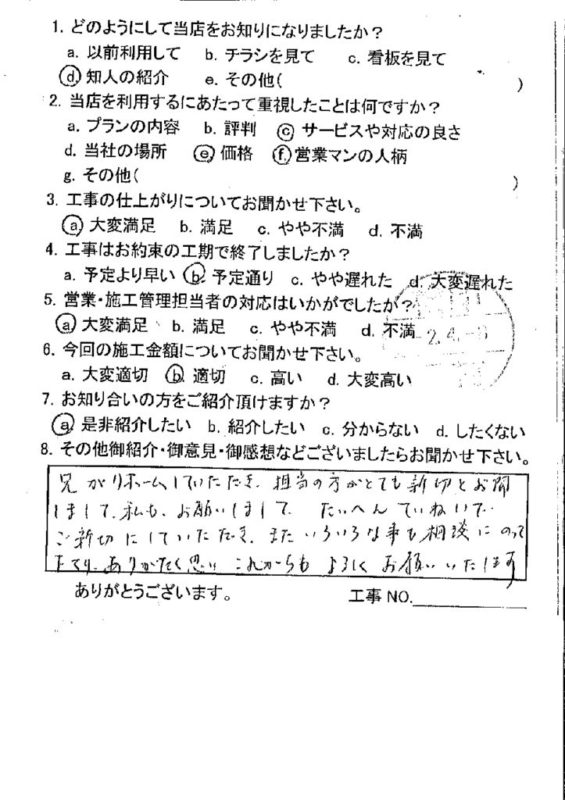 1. どのようにして当店をお知りになりましたか?
a. 以前利用して b. チラシを見て c. 看板を見て
ⓓ 知人の紹介 e. その他( )
2. 当店を利用するにあたって重視したことは何ですか?
a. プランの内容 b. 評判 ⓒ サービスや対応の良さ
d. 当社の場所 ⓔ 価格 ⓕ 営業マンの人柄
g. その他( )
3. 工事の仕上がりについてお聞かせ下さい。
ⓐ 大変満足 b. 満足 c. やや不満 d. 不満
4. 工事はお約束の工期で終了しましたか?
a. 予定より早い ⓑ 予定通り c. やや遅れた d. 大変遅れた
5. 営業・施工管理担当者の対応はいかがでしたか?
ⓐ 大変満足 b. 満足 c. やや不満 d. 不満
6. 今回の施工金額についてお聞かせ下さい。
a. 大変適切 ⓑ 適切 c. 高い d. 大変高い
7. お知り合いの方をご紹介頂けますか?
ⓐ 是非紹介したい b. 紹介したい c. 分からない d. したくない
8. その他御紹介・御意見・御感想などございましたらお聞かせ下さい。
兄がリホームしていただき、担当の方がとても新切とお聞
きしまして、私も、お願いしまして たいへんていねいで、
ご新切にしていただき、またいろいろな事も相談にのって
ありがたく思い これからも よろしく お願いいたします
ありがとうございます。 工事 NO.